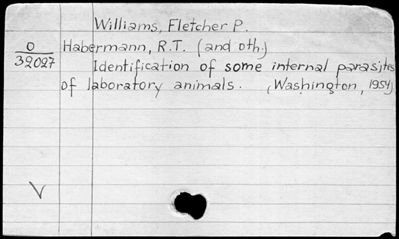 Williams, Fletcher P.
O
32027
Habermann, R.T. (and oth.)
Identification of some internal parasites
of laboratory animals. (Washington, 1954)
V